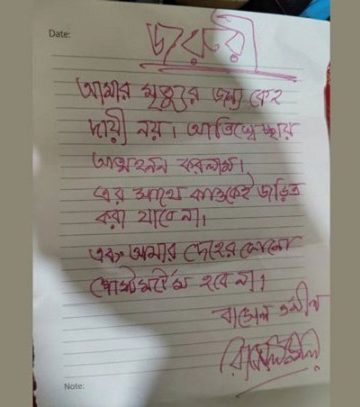 Date:
জরুরী
আমার মৃত্যুর জন্য কেহ
দায়ী নয়। আমি স্বেচ্ছায়
আত্মহনন করলাম।
এর সাথে কাউকেই জড়িত
করা যাবে না।
এবং আমার দেহের কোনো
পোস্টমর্টেম হবে না।
রাসেল
Note: